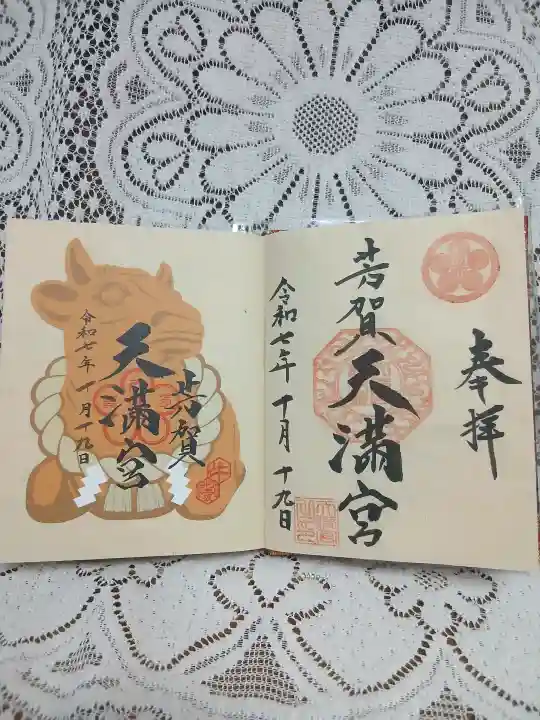 奉拝
芳賀天満宮
令和七年十月十九日
芳賀
天満宮
令和七年十月十九日